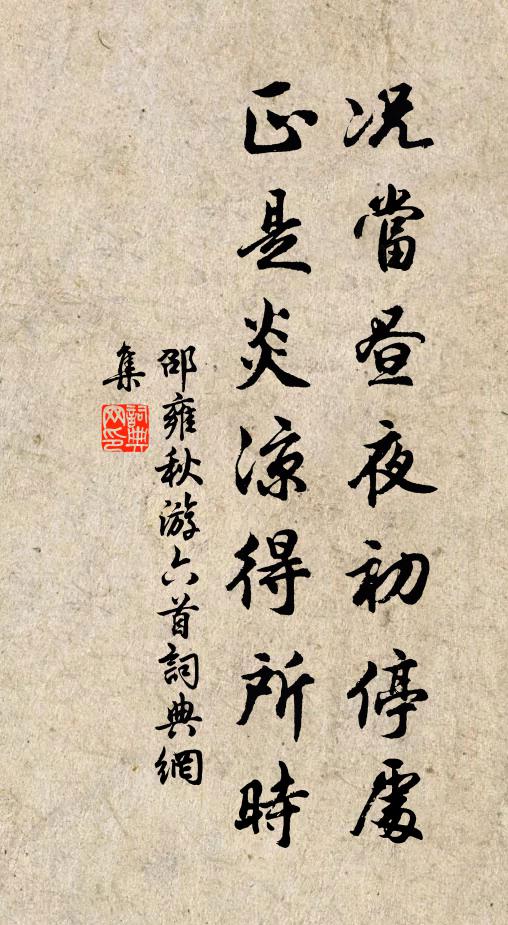 况當昼夜初停處
正是炎凉得所時
邵雍秋游六首詞典網
集
詞典
网印